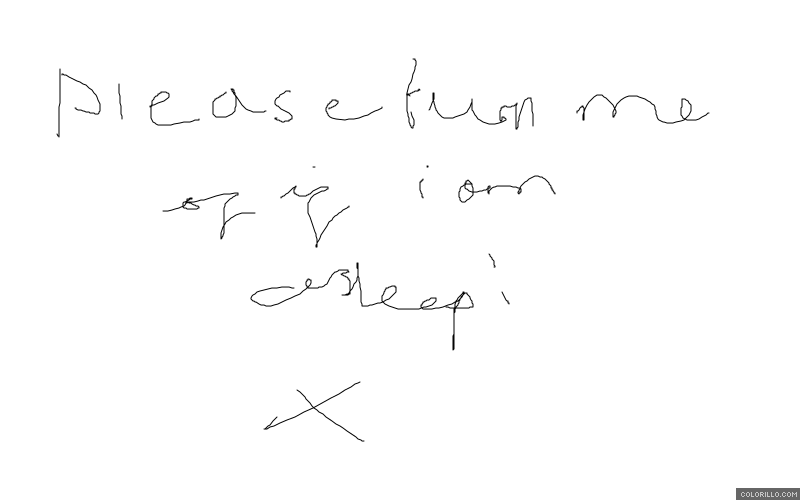 please turn me
of if i am
asleep!
X
COLORILLO.COM